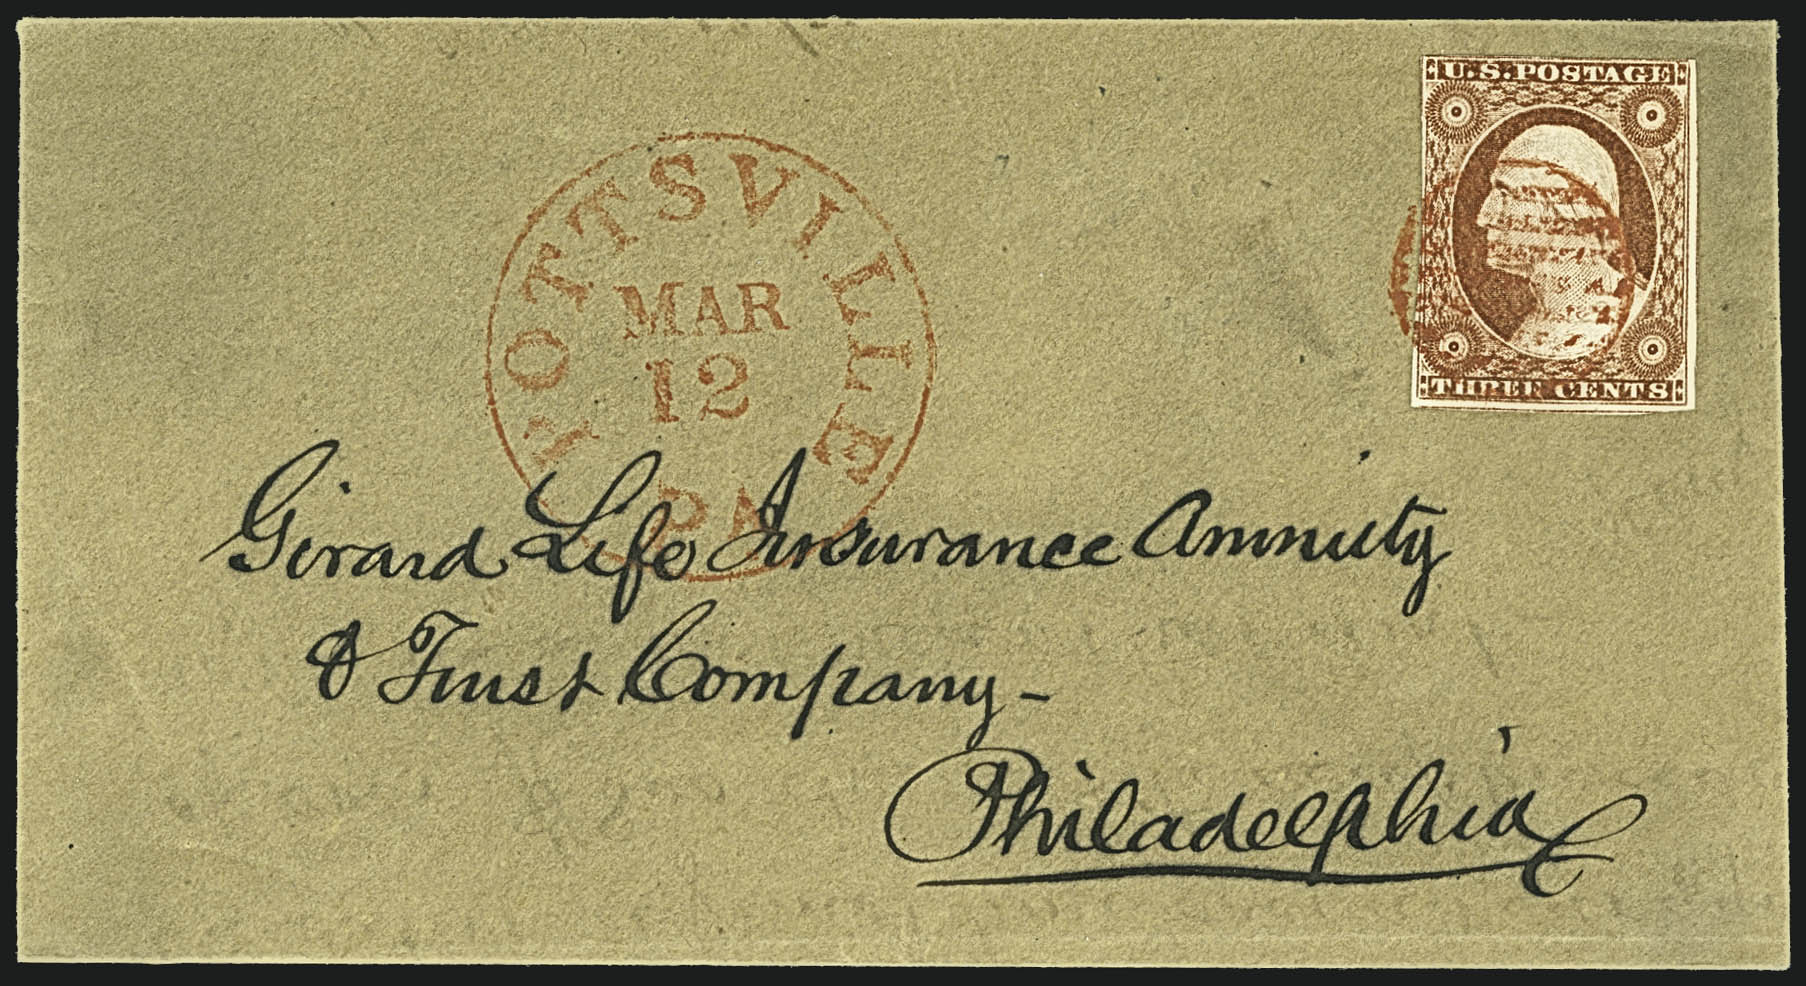 U.S. POSTAGE
THREE CENTS
POTTSVILLE
MAR
12
PA
Girard Life Insurance Annuity
& Trust Company -
Philadelphia